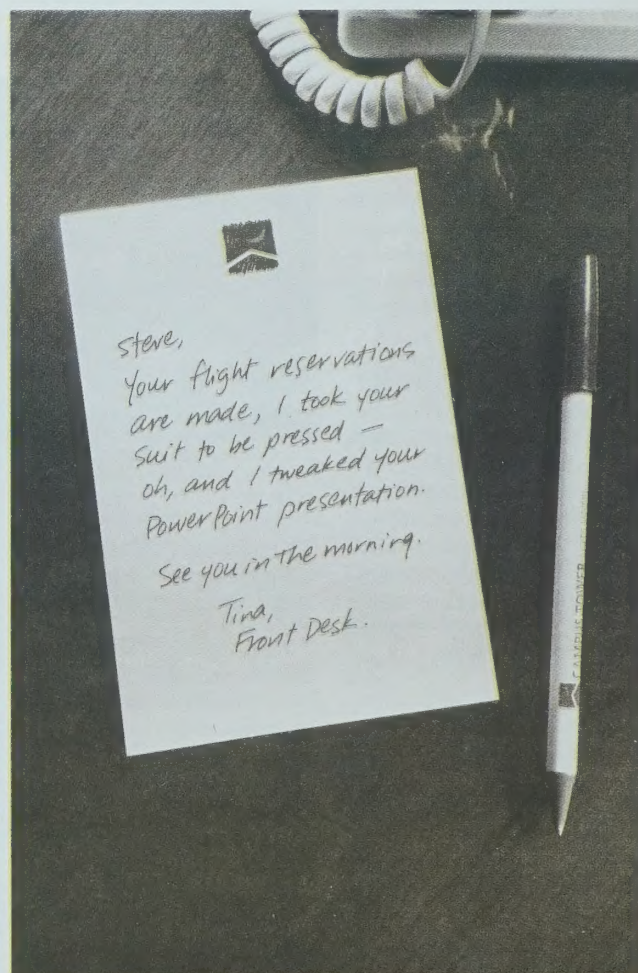 Steve,
Your flight reservations
are made, I took your
suit to be pressed –
oh, and I tweaked your
PowerPoint presentation.
See you in the morning.
Tina,
Front Desk.
CAMPUS TOWER